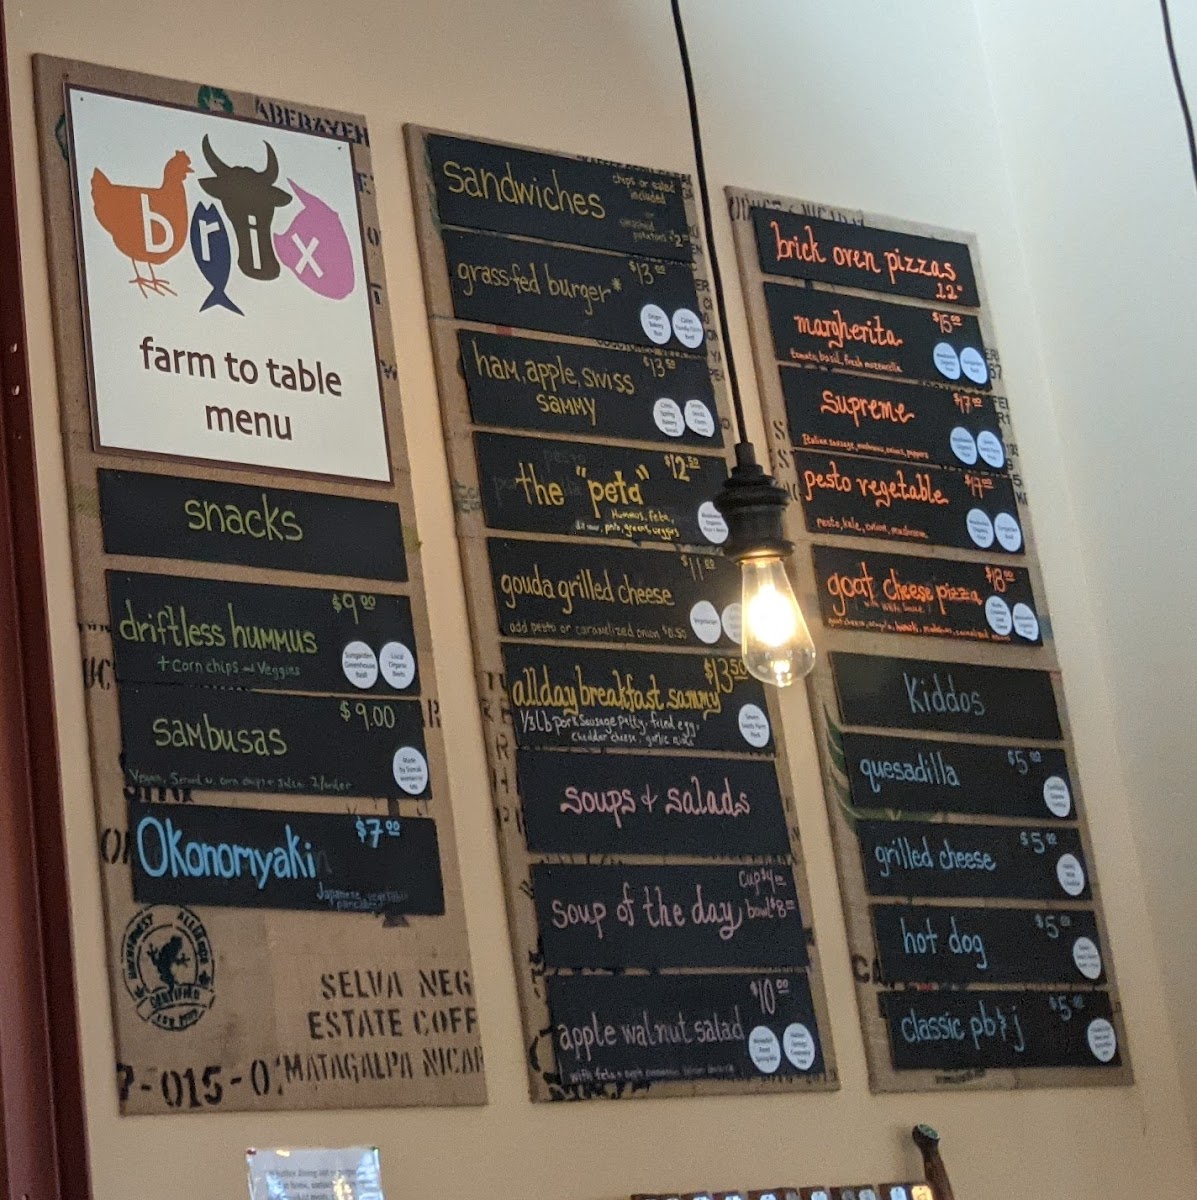 ABERGYEH
brix
farm to table
menu
snacks
driftless hummus $9.00
+ corn chips and veggies
Sungarden
Greenhouse
Basil
Local
Organic
Beets
sambusas $9.00
Vegan, Served w. corn chips + salsa 2/order
Made
by Somali
Okonomyaki $7.00
Japanese vegetable
pancake
CERTIFIED
SELVA NEG
ESTATE COFF
MATAGALPA NICAR
7-015-0
sandwiches
chips or salad
included
or
smashed
potatoes + $2.00
grassfed burger* $13.00
ham, apple, swiss $13.00
sammy
the "peta" $12.50
Hummus, feta,
greens, veggies
gouda grilled cheese $11.00
add pesto or caramelized onion $0.50
Vegetarian
all day breakfast sammy $13.50
1/3 lb pork sausage patty, fried egg,
cheddar cheese, garlic aioli
soups & salads
soup of the day cup $4.00
bowl $8.00
apple walnut salad $10.00
brick oven pizzas
12"
margherita $15.00
tomato, basil, fresh mozzarella
supreme $17.00
Italian sausage, mushrooms, onions, peppers
pesto vegetable $17.00
pesto, kale, onion, mushroom
goat cheese pizza $18.00
with white sauce
Kiddos
quesadilla $5.00
grilled cheese $5.00
hot dog $5.00
classic pb & j $5.00